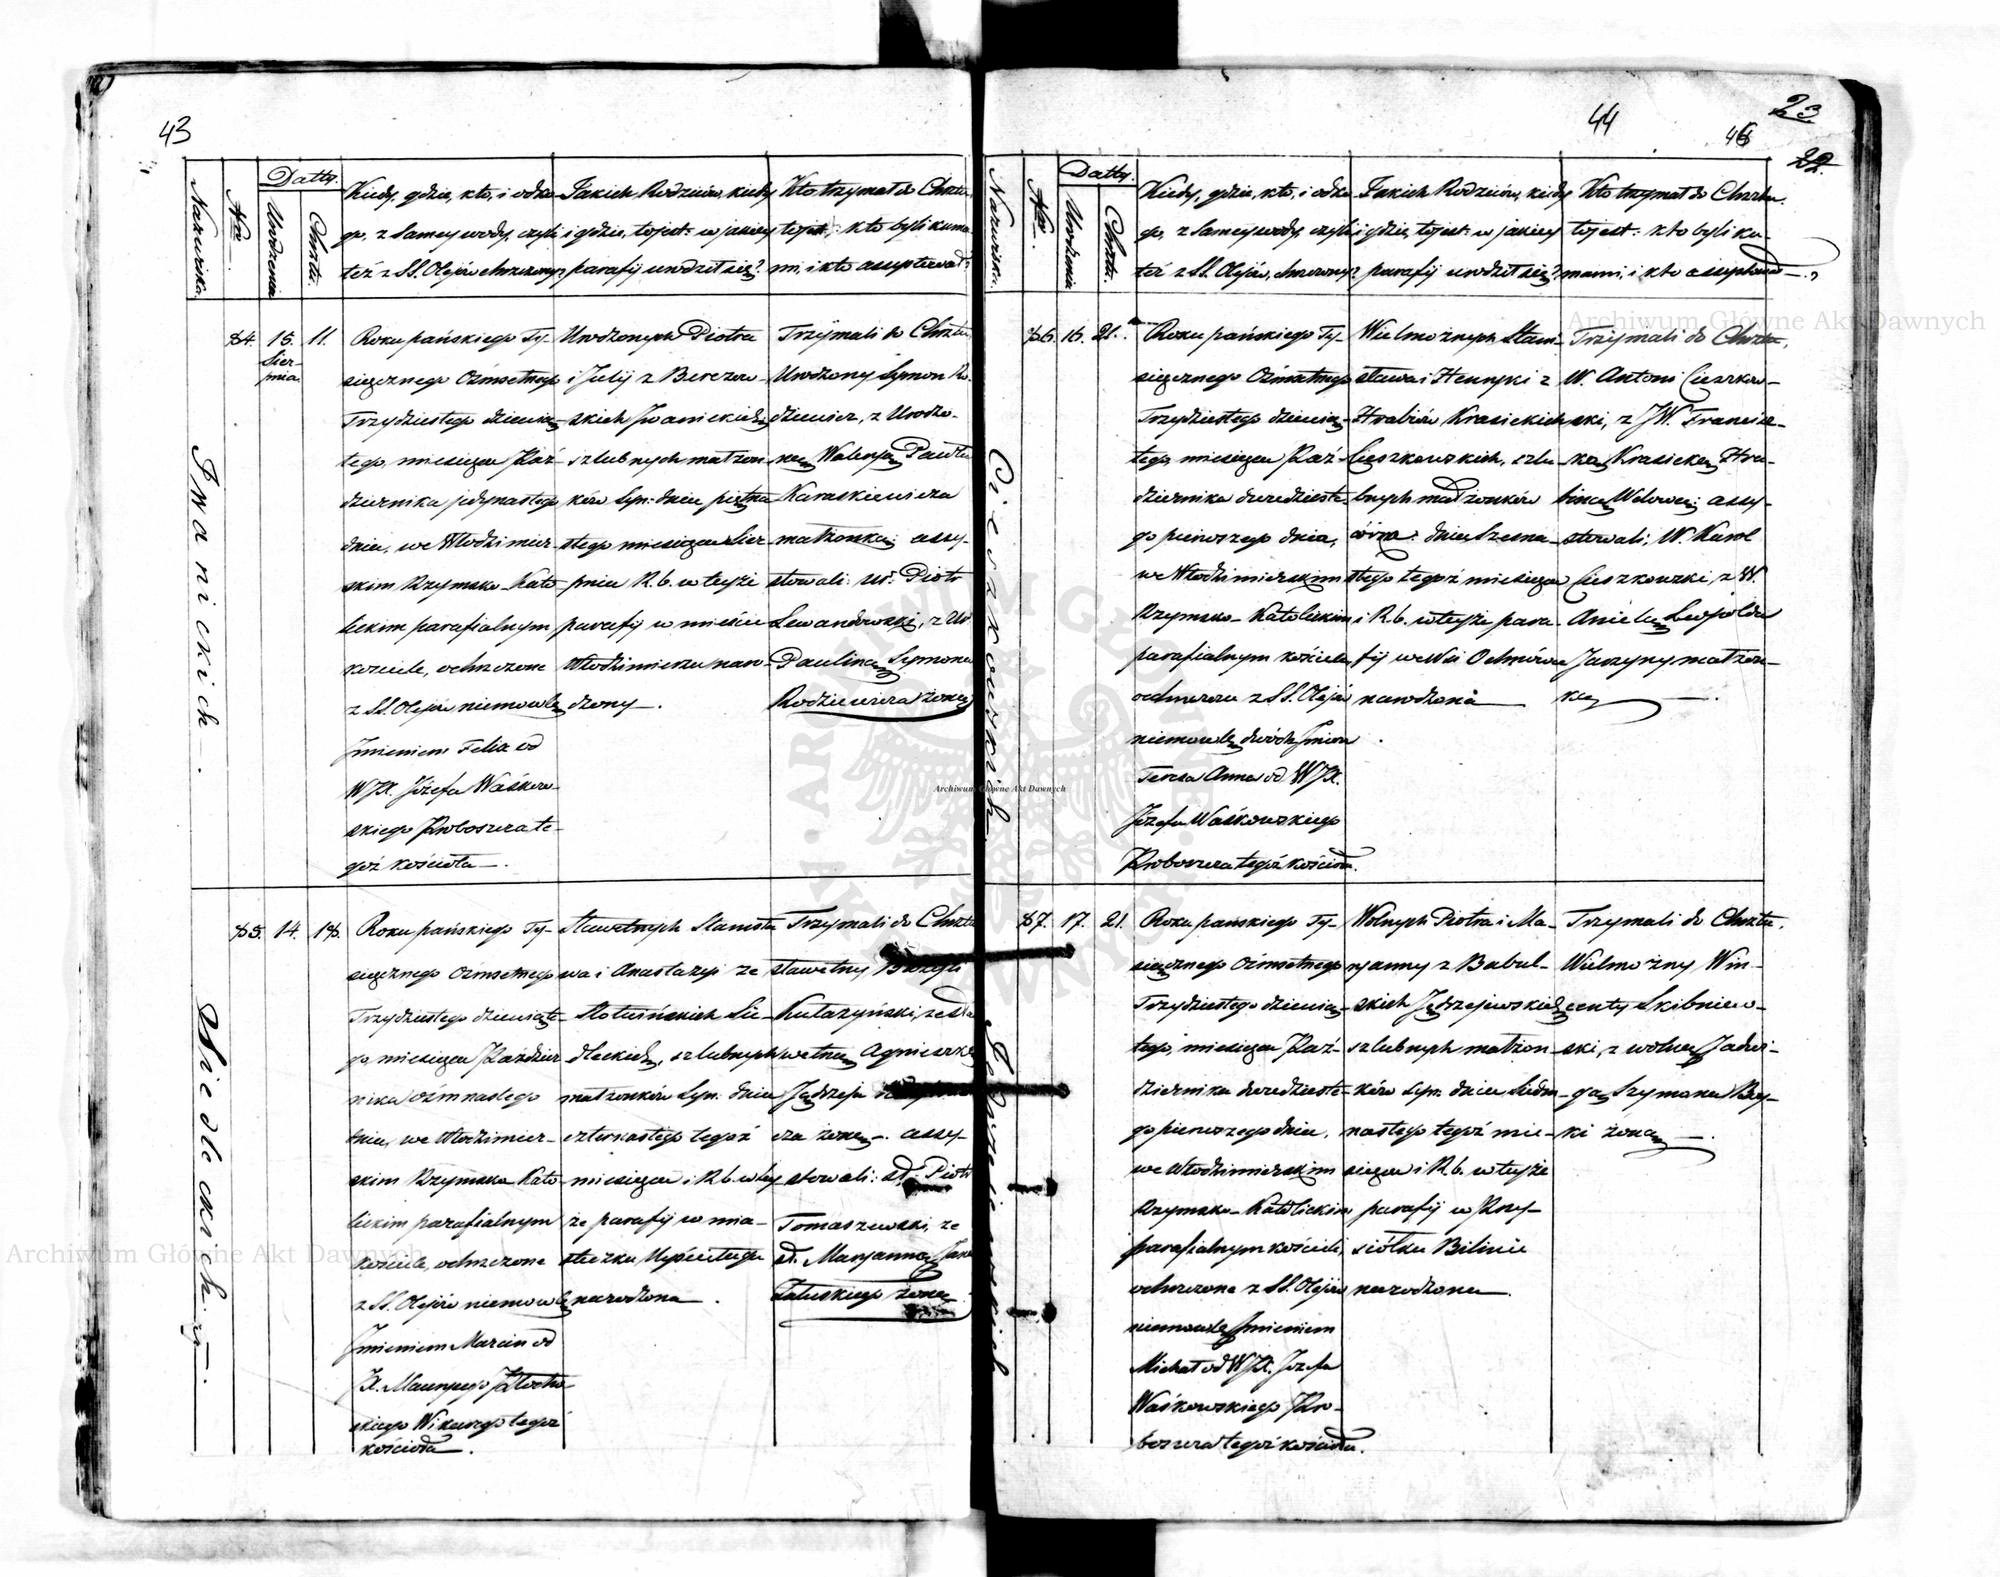 43
Nazwiska.
Nro
Datty.
Urodzenia
Chrztu.
Kiedy, gdzie, kto, i odko-
go, z samey wody, czyli
też z SS. Olejów chrzczony?
Jakich Rodziców, kiedy
i gdzie, to jest: w jakiey
parafij urodził się?
Kto trzymał do Chrztu,
to jest: kto byli kuma-
mi, i kto assystował?
Iwanickich.
84.
15.
Sier-
pnia.
11.
Roku pańskiego Ty-
siącznego Ośmsetnego
Trzydziestego dziewią-
tego, miesiąca Paź-
dziernika jedynastego
dnia, we Włodzimier-
skim Rzymsko-Kato-
lickim parafialnym
kościele, ochrzczone
z SS. Olejów niemowle
Jmieniem Felix od
WJX. Józefa Waśkow-
skiego Proboszcza te-
goż kościoła.
Urodzonych Piotra
i Julij z Berezow-
skich Iwanickich
szlubnych małżon-
ków Syn: dnia piętna-
stego miesiąca Sier-
pnia R. b. w tejże
parafij w mieście
Włodzimierzu naro-
dzony.
Trzymali do Chrztu,
Urodzony Symon Ro-
dziewicz, z Urodzo-
ną Waleryą Pawła
Karaskiewicza
małżonką; assy-
stowali: Ur. Piotr
Lewandowski, z Ur.
Pauliną Symona
Rodziewicza żoną
Siedleckich.
85.
14.
18.
Roku pańskiego Ty-
siącznego Ośmsetnego
Trzydziestego dziewiąte-
go, miesiąca Paździer-
nika ośmnastego
dnia, we Włodzimier-
skim Rzymsko-Kato-
lickim parafialnym
kościele, ochrzczone
z SS. Olejów niemowle
Jmieniem Marcin od
JX. Maurycego
skiego Wikarego tegoż
kościoła.
Sławetnych Stanisła-
wa i Anastazyi ze
Sie-
dleckich, szlubnych
małżonków Syn: dnia
czternastego tegoż
miesiąca i R. b. w tey-
że parafij w mia-
steczku Uściługu
narodzona.
Trzymali do Chrztu
sławetny Bazyli
Kutarzyński, ze sła-
wetną Agnieszką
Jędrzeja
cza żoną. assy-
stowali: sł. Piotr
Tomaszewski, ze
sł. Maryanną Jana
Załuskiego żoną.
44
23
Nazwiska.
Nro
Datty.
Urodzenia
Chrztu.
Kiedy, gdzie, kto, i odko-
go, z samey wody, czyli
też z SS. Olejów, chrzczony?
Jakich Rodziców, kiedy
i gdzie, to jest: w jakiey
parafij urodził się?
Kto trzymał do Chrztu.
to jest: kto byli ku-
mami, i kto assystował
Cieszkowskich.
86.
16.
21.
Roku pańskiego Ty-
siącznego Ośmsetnego
Trzydziestego dziewią-
tego, miesiąca Paź-
dziernika dwudzieste-
go pierwszego dnia,
we Włodzimierskim
Rzymsko-Katolickim
parafialnym kościele,
ochrzczone z SS. Olejów
niemowle dwóch Jmion
Teresa Anna od WJX.
Józefa Waśkowskiego
Proboszcza tegoż kościoła.
Wielmożnych Stani-
sława i Henryki z
Hrabiów Krasickich
Cieszkowskich, szlu-
bnych małżonków
córka: dnia Szesna-
stego tegoż miesiąca
i R. b. w tejże para-
fij we Wsi Ochnówce
narodzona
Trzymali do Chrztu,
W. Antoni Cieszkow-
ski, z JW. Francisz-
ką Krasicką Hra-
biną Wdową; assy-
stowali; W. Karol
Cieszkowski, z W.
Anielą Leopolda
Jaszyny małżon-
ką.
Jędrzejewskich
87.
17.
21.
Roku pańskiego Ty-
siącznego Ośmsetnego
Trzydziestego dziewią-
tego, miesiąca Paź-
dziernika dwudzieste-
go pierwszego dnia,
we Włodzimierskim
Rzymsko-Katolickim
parafialnym kościele,
ochrzczone z SS. Olejów
niemowle Jmieniem
Michał od WJX. Józefa
Waśkowskiego Pro-
boszcza tegoż kościoła.
Wolnych Piotra i Ma-
ryanny z Babul-
skich Jędrzejewskich
szlubnych małżon-
ków Syn: dnia Siedm-
nastego tegoż mie-
siąca i R. b. w tejże
parafij w Przy-
siółku Bilinie
narodzona.
Trzymali do Chrztu,
Wielmożny Win-
centy Skibniew-
ski, z wolną Jadwi-
gą Szymona Bey-
ki żoną.
Archiwum Główne Akt Dawnych
Archiwum Główne Akt Dawnych
Archiwum Główne Akt Dawnych